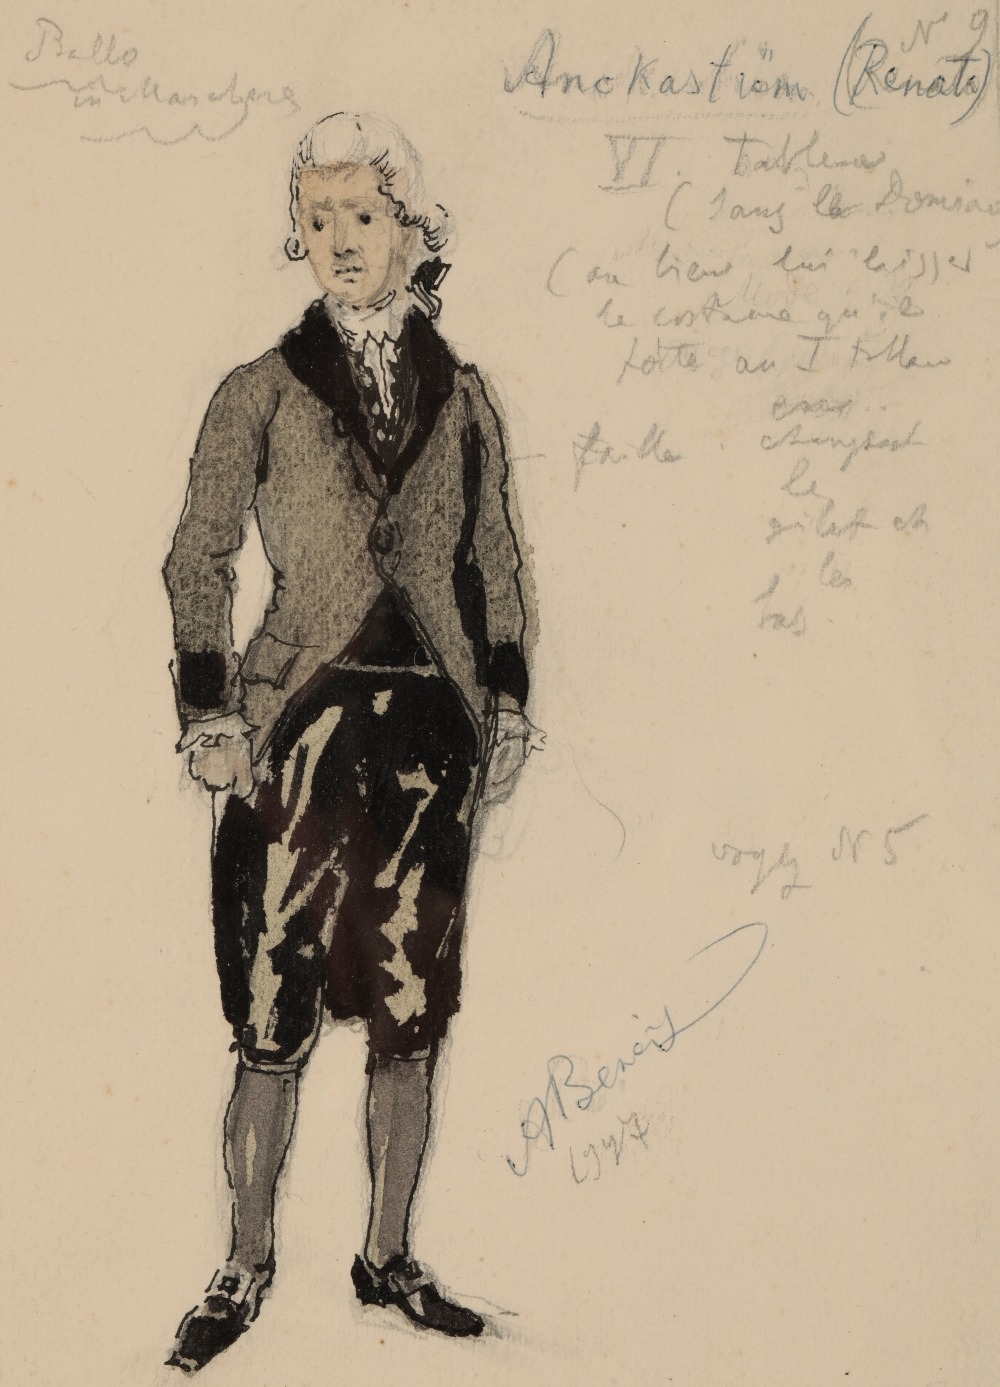 Ballo
in Maschera
N° 9
Anckaström (Renato)
VI. tableau
(sans le Domino
(ou bien lui laisser
le costume qu'il
porte au I tableau
changeant
les
gilet et
les
bas.
faille
voyez N 5
ABenois
1947